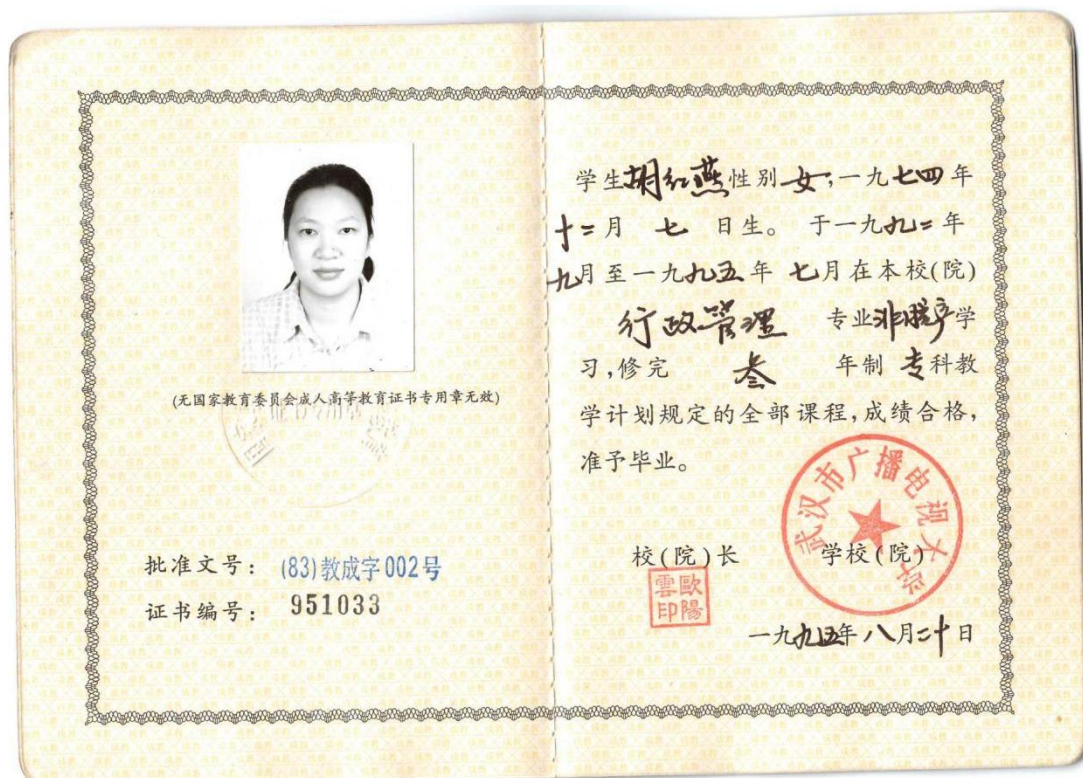 (无国家教育委员会成人高等教育证书专用章无效)
批准文号： (83)教成字002号
证书编号： 951033
学生胡红燕性别女,一九七四年
十二月 七 日生。 于一九九二年
九月至一九九五年 七月在本校(院)
行政管理 专业非脱产学
习,修完 叁 年制 专科教
学计划规定的全部课程,成绩合格,
准予毕业。
武汉市广播电视大学
校(院)长 学校(院)
歐陽雲印
一九九五年八月二十日